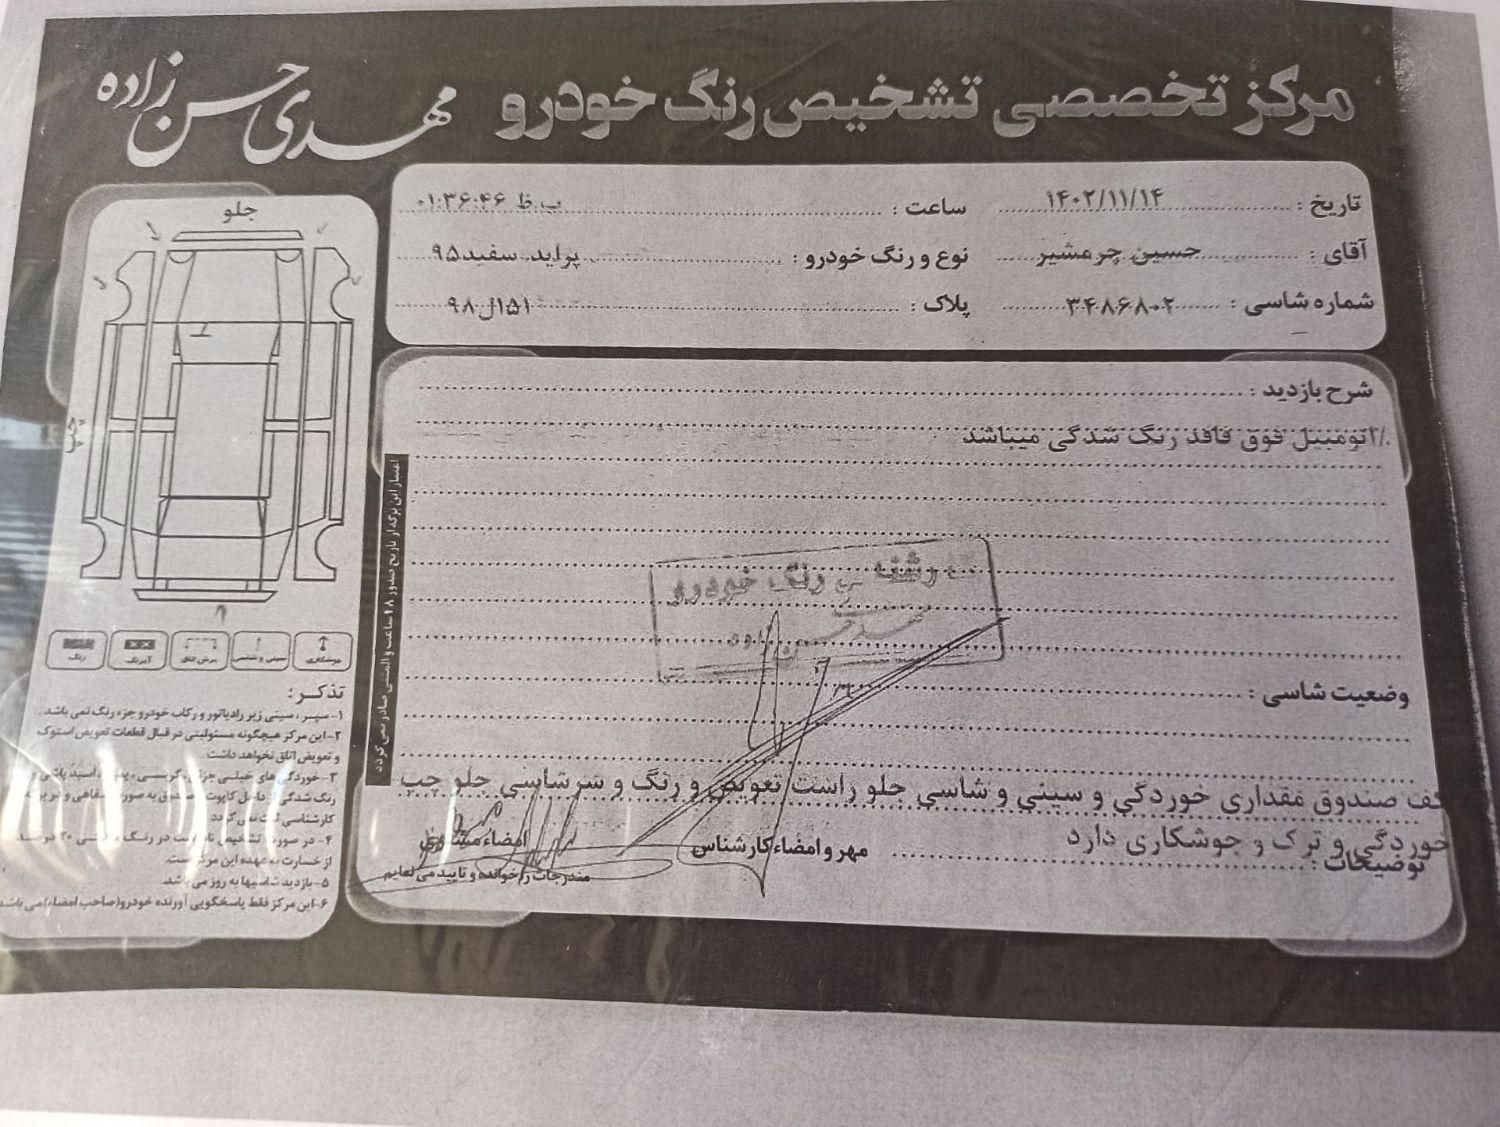 مرکز تخصصی تشخیص رنگ خودرو مهدی حسن زاده
تاریخ : ۱۴۰۲/۱۱/۱۴ ساعت : ۰۱:۳۶:۴۶ ب.ظ
آقای : حسین چرمشیر نوع و رنگ خودرو : پراید سفید ۹۵
شماره شاسی : ۳۴۸۶۸۰۲ پلاک : ۱۵۱ل۹۸
شرح بازدید :
٪اتومبیل فوق فاقد رنگ شدگی میباشد
رنگ خودرو
وضعیت شاسی :
کف صندوق مقداری خوردگی و سینی و شاسی جلو راست تعویض و رنگ و سرشاسی جلو چپ
خوردگی و ترک و جوشکاری دارد
توضیحات :
مهر و امضاء کارشناس
امضاء مشتری
مندرجات را خوانده و تایید می نمایم
اعتبار این برگه از تاریخ صدور ۴۸ ساعت و المثنی صادر نمی گردد
جلو
چپ
جوشکاری
سینی و شاسی
برش اتاق
آبرنگ
رنگ
تذکر :
۱- سپر ، سینی زیر رادیاتور و رکاب خودرو جزء رنگ نمی باشد .
۲- این مرکز هیچگونه مسئولیتی در قبال قطعات تعویض استوک
و تعویض اتاق نخواهد داشت
۳- خوردگی های خیلی جزئی،
رنگ شدگی از داخل کاپوت
کارشناسی ثبت نمی گردد
۴- در صورت تشخیص در رنگ ۲۰ درصد
از خسارت به عهده این مرکز است.
۵- بازدید شاسیها به روز می باشد.
۶- این مرکز فقط پاسخگویی آورنده خودرو(صاحب امضاء)می باشد